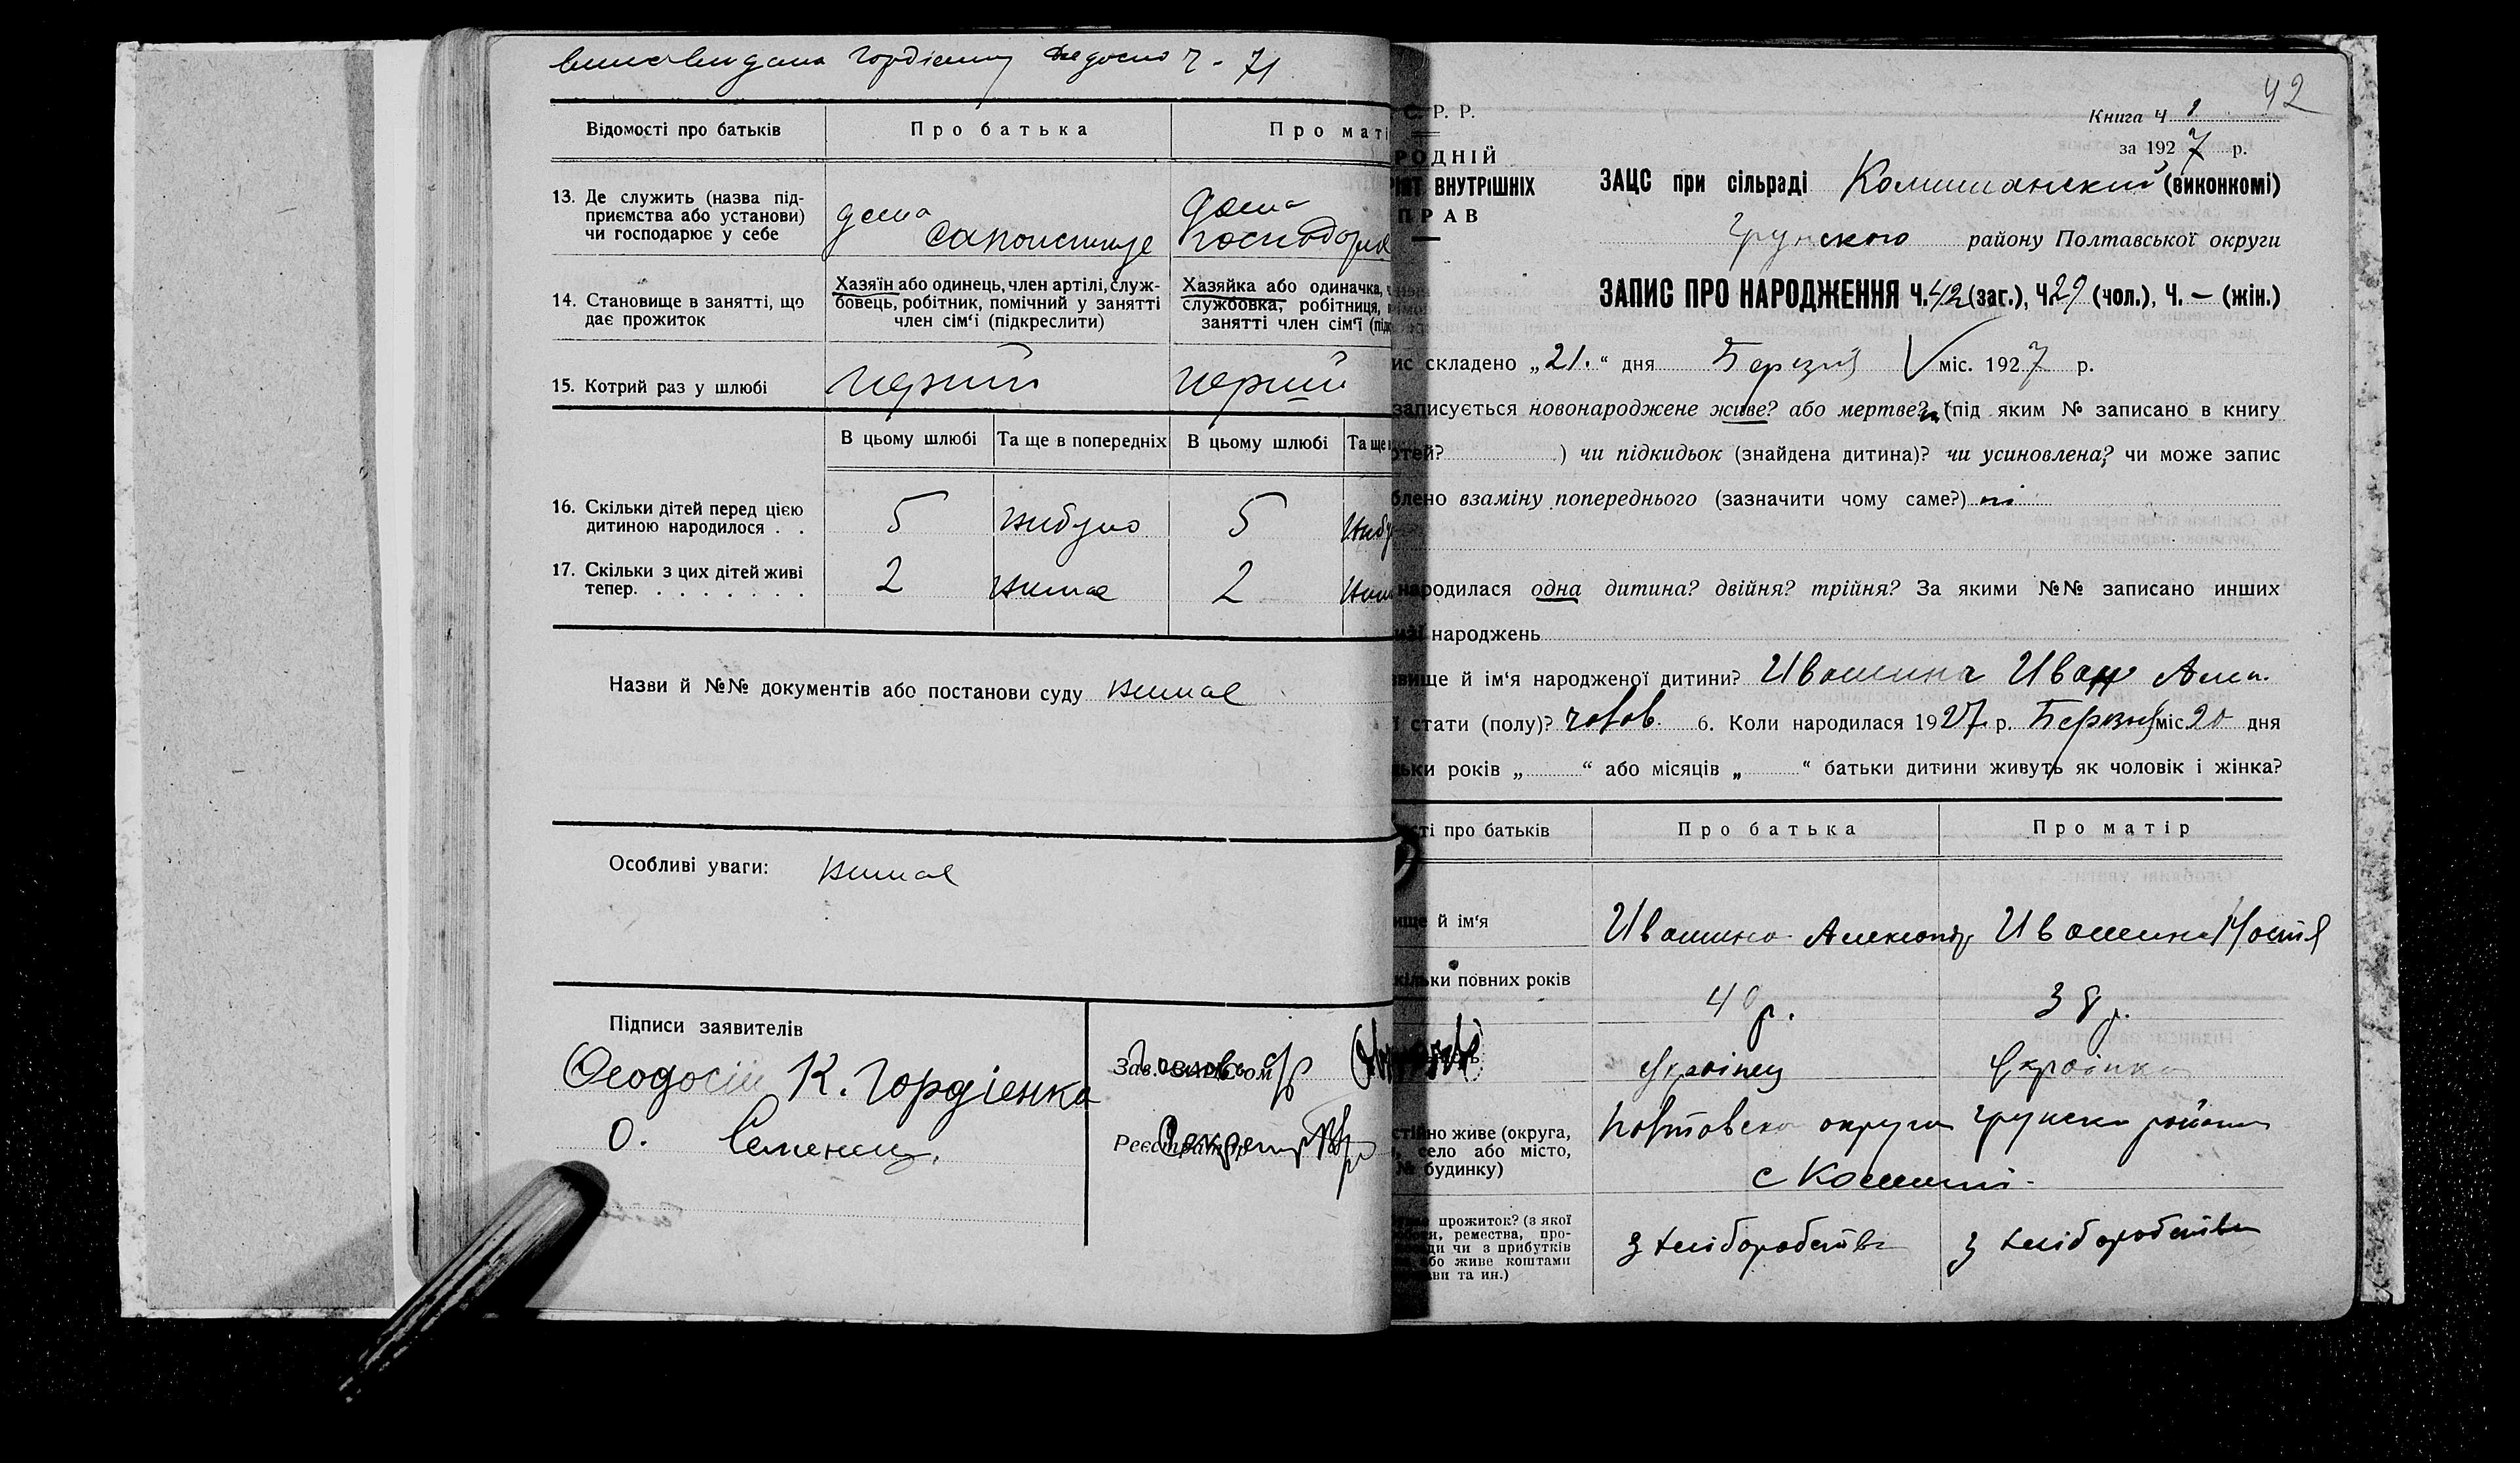 Гордієнку Ч - 71
Відомості про батьків
Про батька
Про маті
13. Де служить (назва під-
приємства або установи)
чи господарює у себе
дома
дома
14. Становище в занятті, що
дає прожиток
Хазяїн або одинець, член артілі, служ-
бовець, робітник, помічний у занятті
член сім‘ї (підкреслити)
Хазяйка або одиначка, ч
службовка, робітниця,
занятті член сім‘ї (під
15. Котрий раз у шлюбі
перший
перший
В цьому шлюбі
Та ще в попередніх
В цьому шлюбі
Та ще
16. Скільки дітей перед цією
дитиною народилося . .
5
небуло
5
небу
17. Скільки з цих дітей живі
тепер. . . . . . . .
2
нимає
2
ним
Назви й №№ документів або постанови суду нимає
Особливі уваги: нимає
Підписи заявителів
Феодосій К. Гордіенка
О. Семенец
Зав. ЗАГСом
Реєстратор
42
С. Р. Р.
РОДНІЙ
ВНУТРІШНІХ
ПРАВ
Книга Ч 1
за 1927 р.
ЗАЦС при сільраді Комишанский (виконкомі)
Грунского району Полтавської округи
ЗАПИС ПРО НАРОДЖЕННЯ Ч. 42 (заг.), Ч. 29 (чол.), Ч. — (жін.)
ис складено „21.“ дня Березня міс. 1927 р.
записується новонароджене живе? або мертве? (під яким № записано в книгу
ртей? ) чи підкидьок (знайдена дитина)? чи усиновлена? чи може запис
блено взаміну попереднього (зазначити чому саме?) ні
народилася одна дитина? двійня? трійня? За якими №№ записано инших
народжень
вище й ім‘я народженої дитини? Ивашина Иван Алек.
ї стати (полу)? чолов. 6. Коли народилася 1927 р. Березня міс. 20 дня
льки років „ “ або місяців „ “ батьки дитини живуть як чоловік і жінка?
сті про батьків
Про батька
Про матір
ище й ім‘я
Ивашина Александр
Ивашина Настя
кільки повних років
40 р.
38 р.
Українец
Українка
стійно живе (округа,
село або місто,
№ будинку)
Полтавска округа Грунски района
с Комиші
прожиток? (з якої
ремества, про-
ди чи з прибутків
бо живе коштами
ави та ин.)
З хліборобства
З хліборобства